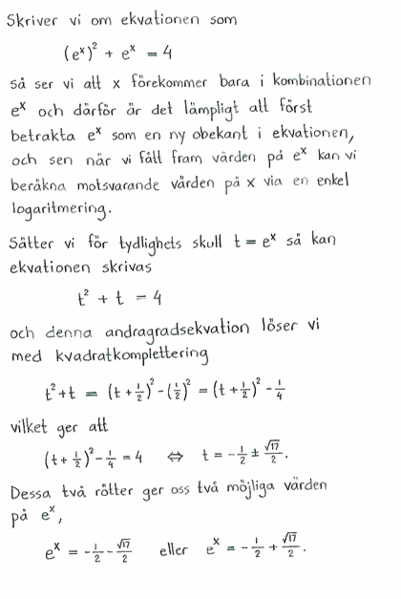 Skriver vi om ekvationen som
(eˣ)² + eˣ = 4
så ser vi att x förekommer bara i kombinationen
eˣ och därför är det lämpligt att först
betrakta eˣ som en ny obekant i ekvationen,
och sen när vi fått fram värden på eˣ kan vi
beräkna motsvarande värden på x via en enkel
logaritmering.
Sätter vi för tydlighets skull t = eˣ så kan
ekvationen skrivas
t² + t = 4
och denna andragradsekvation löser vi
med kvadratkomplettering
t² + t = (t + 1/2)² - (1/2)² = (t + 1/2)² - 1/4
vilket ger att
(t + 1/2)² - 1/4 = 4 ⇔ t = -1/2 ± √17/2.
Dessa två rötter ger oss två möjliga värden
på eˣ,
eˣ = -1/2 - √17/2 eller eˣ = -1/2 + √17/2.